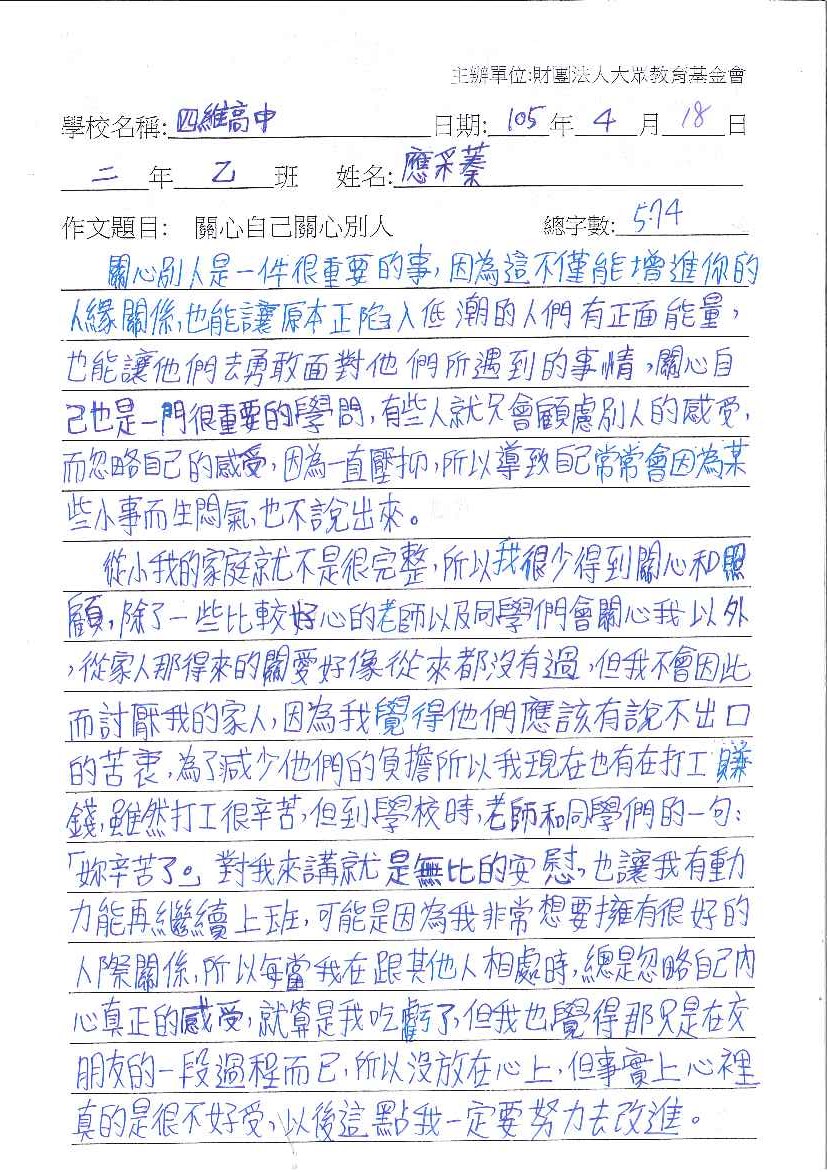 主辦單位:財團法人大眾教育基金會
學校名稱: 四維高中 日期: 105 年 4 月 18 日
二 年 乙 班 姓名: 應采蓁
作文題目: 關心自己關心別人 總字數: 574
關心別人是一件很重要的事,因為這不僅能增進你的
人緣關係,也能讓原本正陷入低潮的人們有正面能量,
也能讓他們去勇敢面對他們所遇到的事情,關心自
己也是一門很重要的學問,有些人就只會顧慮別人的感受,
而忽略自己的感受,因為一直壓抑,所以導致自己常常會因為某
些小事而生悶氣,也不說出來。
從小我的家庭就不是很完整,所以我很少得到關心和照
顧,除了一些比較好心的老師以及同學們會關心我以外
,從家人那得來的關愛好像從來都沒有過,但我不會因此
而討厭我的家人,因為我覺得他們應該有說不出口
的苦衷,為了減少他們的負擔所以我現在也有在打工賺
錢,雖然打工很辛苦,但到學校時,老師和同學們的一句:
「妳辛苦了。」對我來講就是無比的安慰,也讓我有動
力能再繼續上班,可能是因為我非常想要擁有很好的
人際關係,所以每當我在跟其他人相處時,總是忽略自己內
心真正的感受,就算是我吃虧了,但我也覺得那只是在交
朋友的一段過程而已,所以沒放在心上,但事實上心裡
真的是很不好受,以後這點我一定要努力去改進。